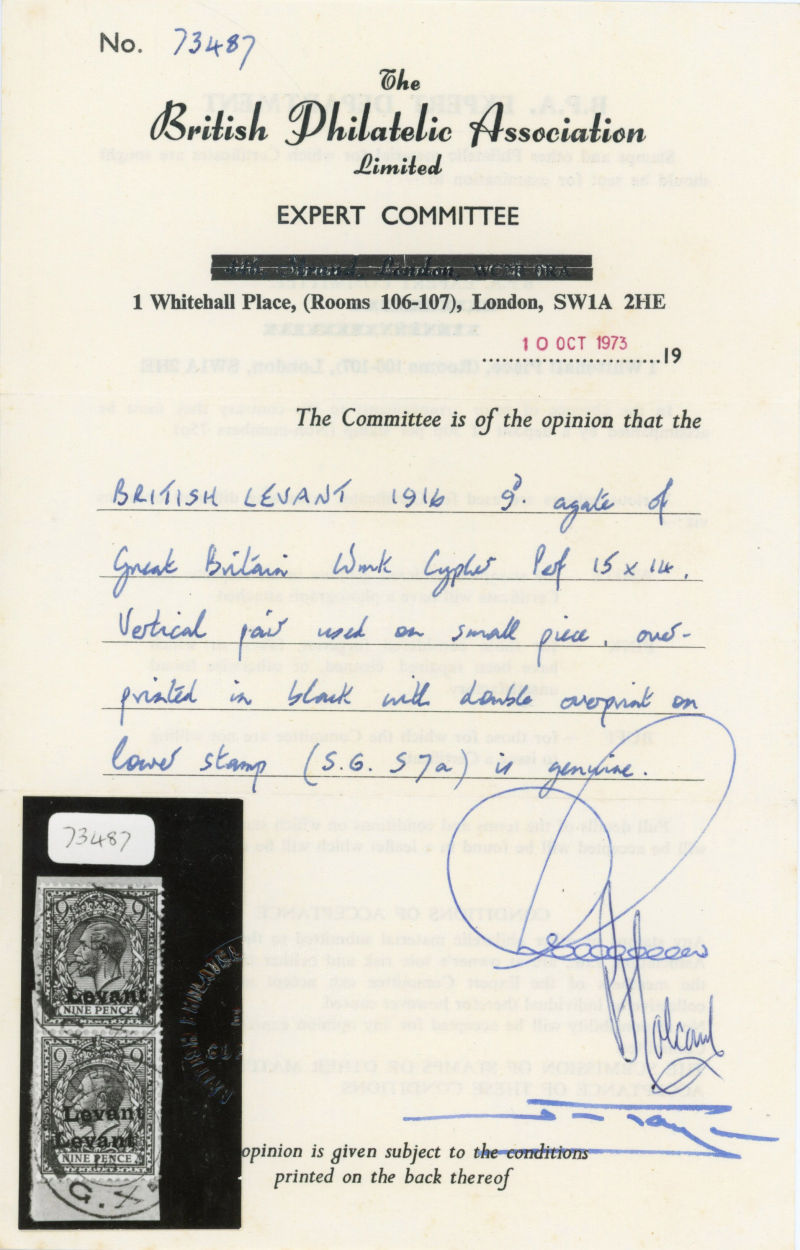 No. 73487
The
British Philatelic Association
Limited
EXPERT COMMITTEE
1 Whitehall Place, (Rooms 106-107), London, SW1A 2HE
10 OCT 1973
19
The Committee is of the opinion that the
BRITISH LEVANT 1916 9d. agate of
Great Britain Wmk Cypher Perf 15 x 14.
Vertical pair used on small piece, over-
printed in black with double overprint on
lower stamp (S.G. S7a) is genuine.
73487
9 9
Levant
NINE PENCE
9 9
Levant
Levant
NINE PENCE
opinion is given subject to the conditions
printed on the back thereof